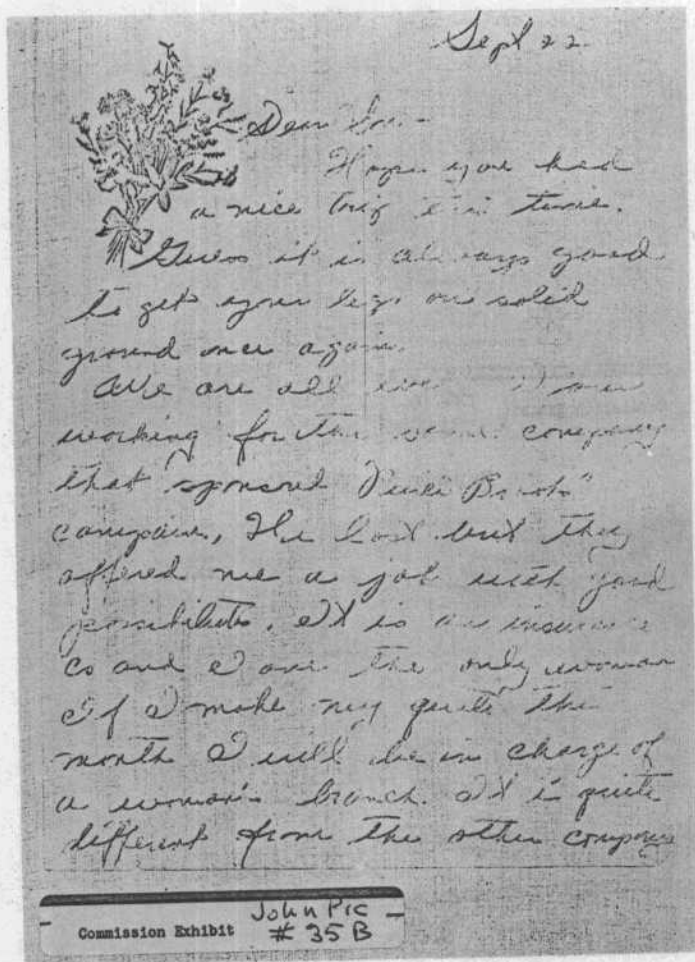 Sept 22.
Dear
Hope you had
a nice trip this time.
Guess it is always good
to get your legs on solid
ground once again.
We are all
working for the same company
that sponsored
He lost but they
offered me a job with good
It is an insurance
co and I am the only woman
If I make my this
month I will be in charge of
a woman's branch. It is quite
different from the other company
Commission Exhibit John Pic
# 35 B